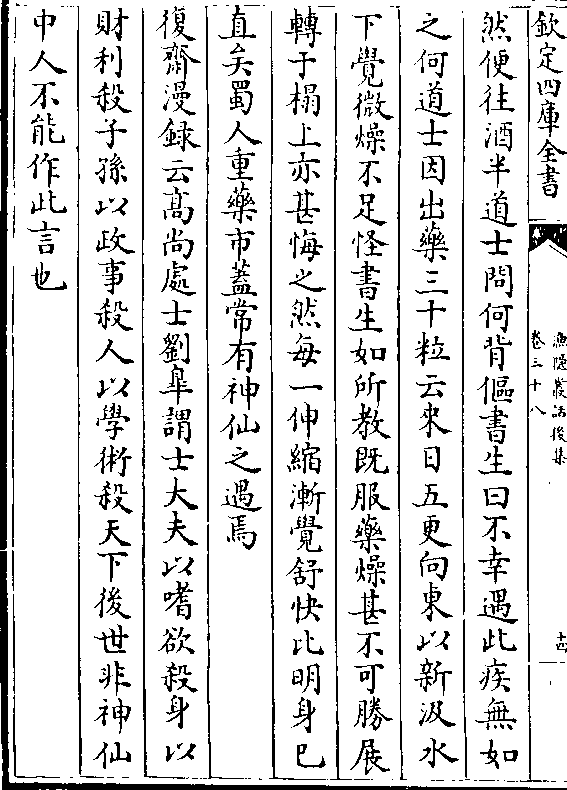 欽定四庫全書
漁隱叢話後集
卷三十八
十四
然便往酒半道士問何背傴書生曰不幸遇此疾無如
之何道士因出藥三十粒云來日五更向東以新汲水
下覺微燥不足怪書生如所教既服藥燥甚不可勝展
轉于榻上亦甚悔之然每一伸縮漸覺舒快比明身已
直矣蜀人重藥市蓋常有神仙之遇焉
復齋漫録云髙尚處士劉臯謂士大夫以嗜欲殺身以
財利殺子孫以政事殺人以學術殺天下後世非神仙
中人不能作此言也